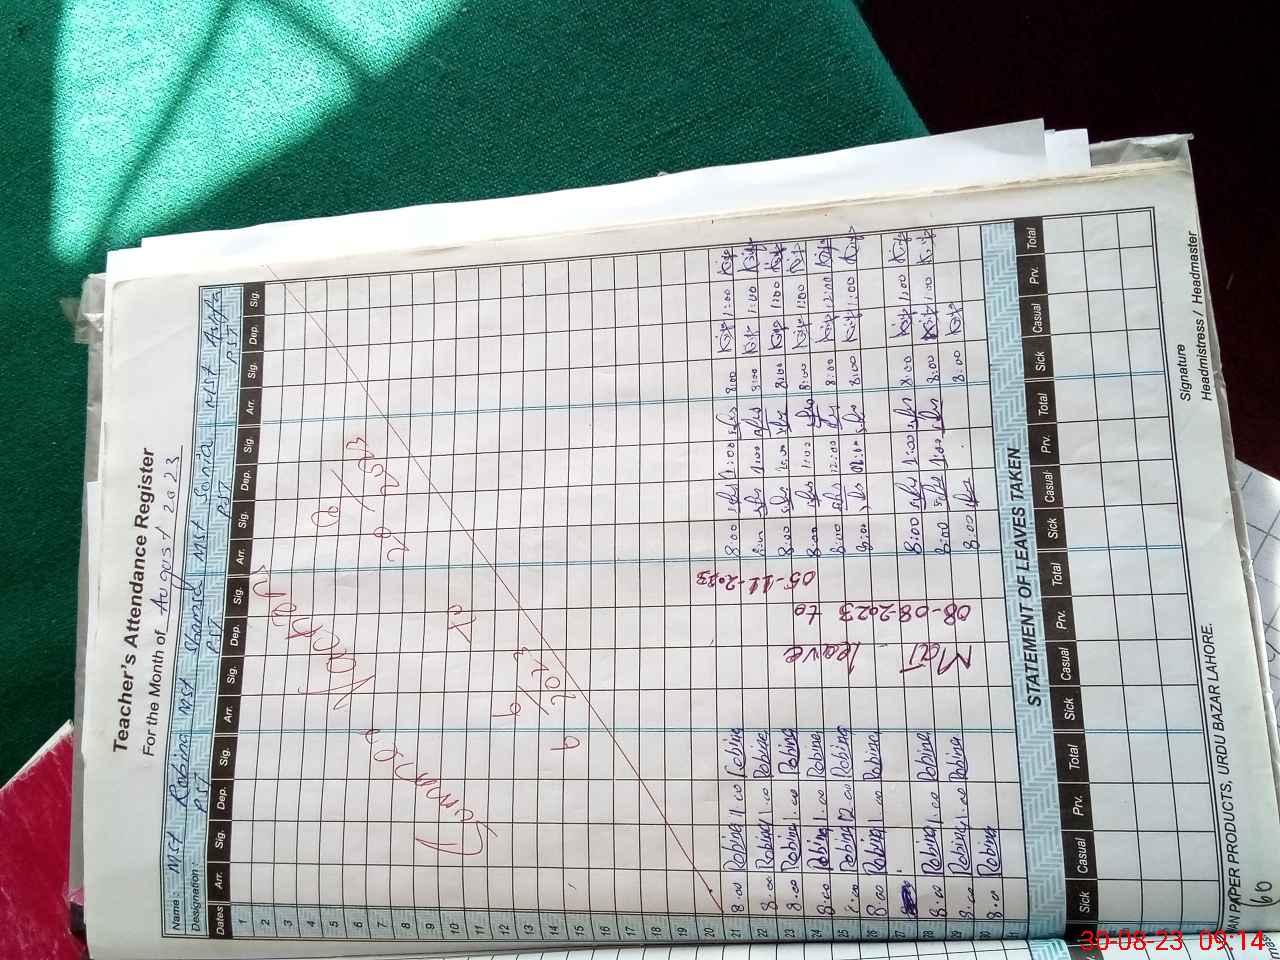 Teacher's Attendance Register
For the Month of August 2023
Name: MST Robina MST Shamid MST Sonia MST Asifa
Designation: PST PST PST PST
Dates Arr. Sig. Dep. Sig. Arr. Sig. Dep. Sig. Arr. Sig. Dep. Sig. Arr. Sig. Dep. Sig.
1
2
3
4
5
6
7
8
9
10
11
12
13
14
15
16
17
18
19
20
Summer Vacation
2023
To
2023
21 8:00 Robina 11:00 Robina 8:00 1:00 8:00 1:00
22 8:00 Robina 1:00 Robina 8:00 1:00 8:00 1:00
23 8:00 Robina 1:00 Robina 8:00 1:00 8:00 1:00
24 8:00 Robina 1:00 Robina 8:00 1:00 8:00 1:00
25 8:00 Robina 12:00 Robina 8:00 12:00 8:00 12:00
26 8:00 Robina 1:00 Robina 8:00 8:00 1:00
27
28 8:00 Robina 1:00 Robina 8:00 1:00 8:00 1:00
29 8:00 Robina 1:00 Robina 8:00 1:00 8:00 1:00
30 8:0 Robina 8:00 8:00
31
Mat leave
08-08-2023 to
05-11-2023
STATEMENT OF LEAVES TAKEN
Sick Casual Prv. Total Sick Casual Prv. Total Sick Casual Prv. Total Sick Casual Prv. Total
Signature
Headmistress / Headmaster
AN PAPER PRODUCTS, URDU BAZAR LAHORE.
60
30-08-23 09:14